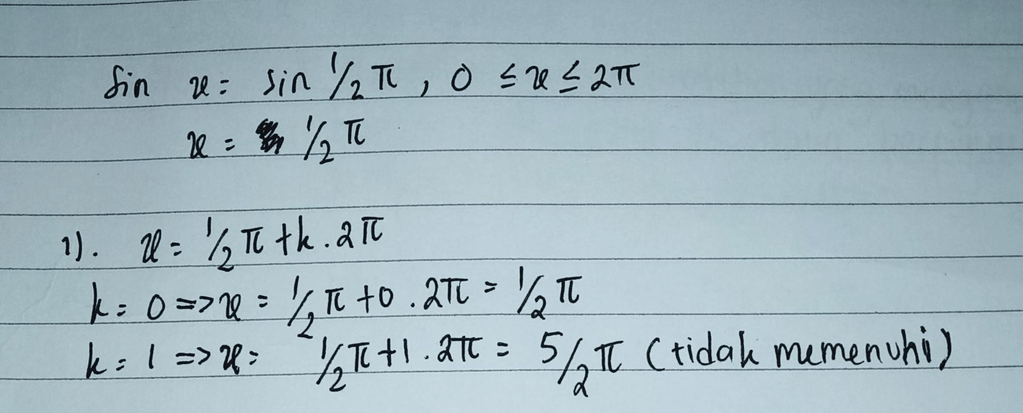 Sin x = sin 1/2 π , 0 ≤ x ≤ 2π
x = 1/2 π
1). x = 1/2 π + k . 2π
k = 0 => x = 1/2 π + 0 . 2π = 1/2 π
k = 1 => x = 1/2 π + 1 . 2π = 5/2 π (tidak memenuhi)